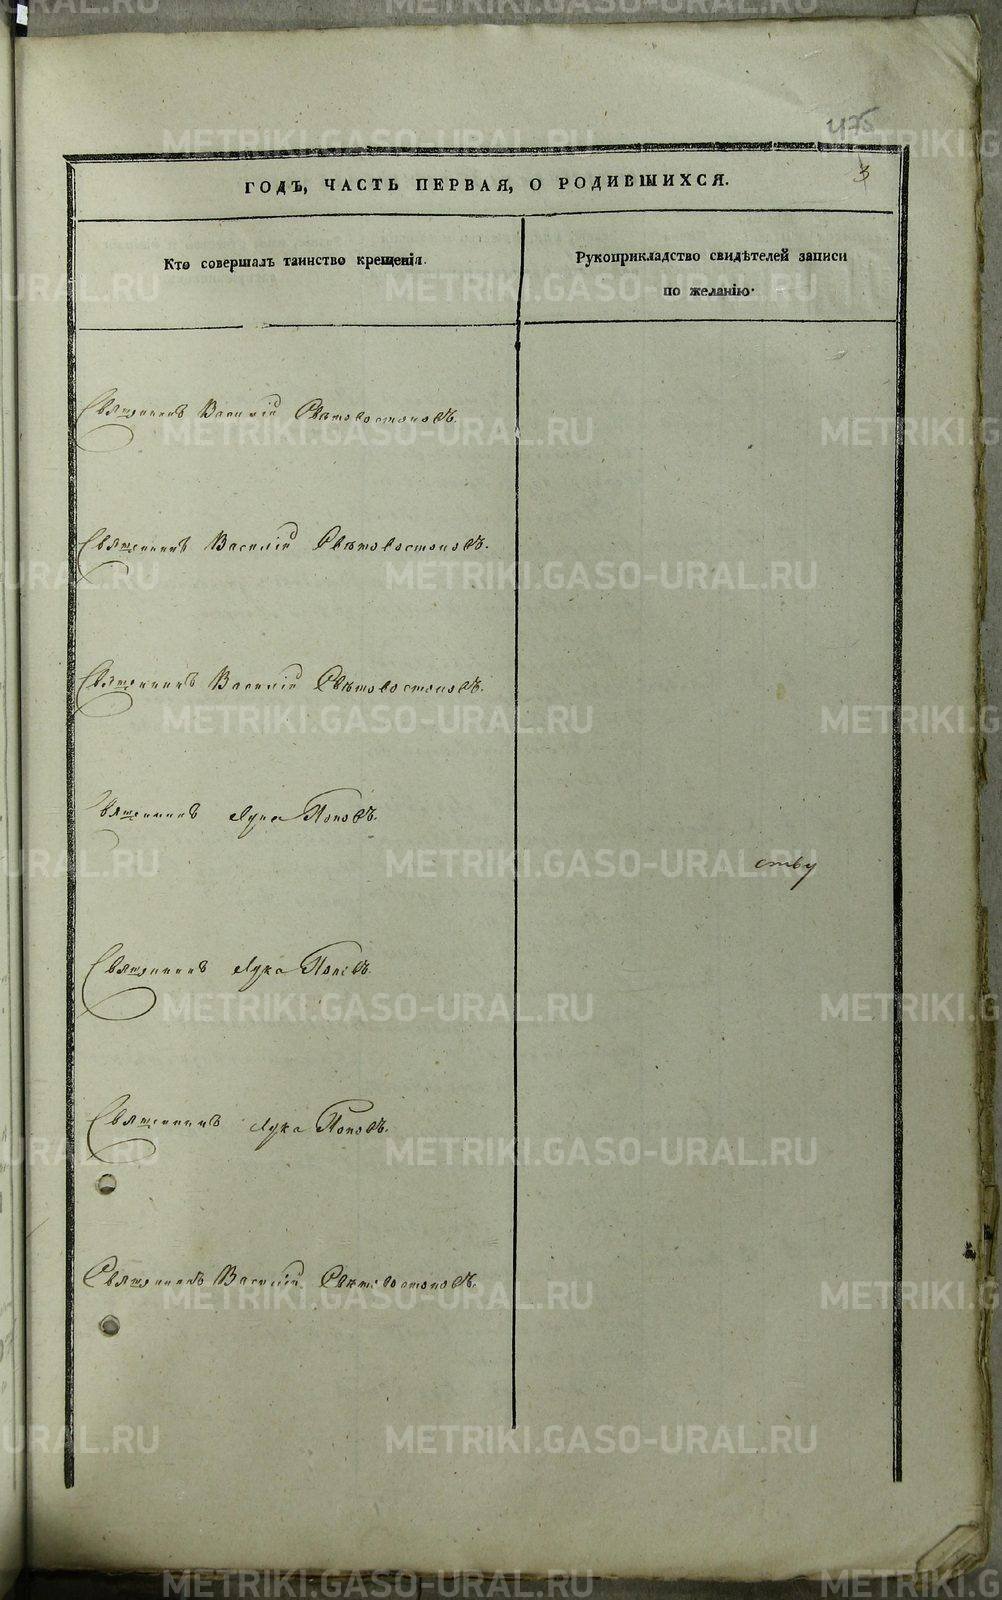 475
3
ГОДЪ, ЧАСТЬ ПЕРВАЯ, О РОДИВШИХСЯ.
Кто совершалъ таинство крещенія.
Рукоприкладство свидѣтелей записи
по желанію.
Священникъ Василій Свѣтовостоковъ.
Священникъ Василій Свѣтовостоковъ.
Священникъ Василій Свѣтовостоковъ.
Священникъ Лука Поповъ.
ству
Священникъ Лука Поповъ.
Священникъ Лука Поповъ.
Священникъ Василій Свѣтовостоковъ.
METRIKI.GASO-URAL.RU